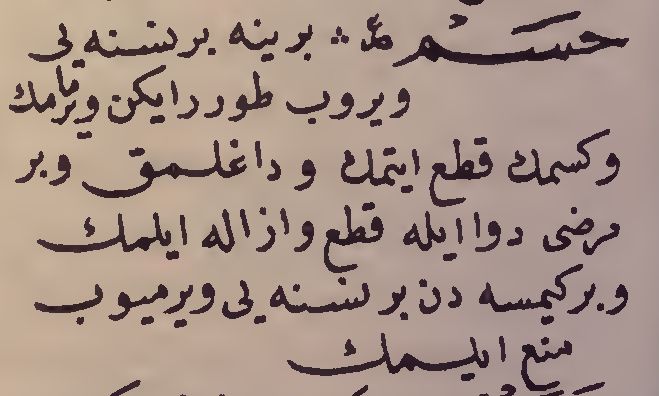 حسم مد ؞ برينه برنسنه يى
ويروب طوررايكن ويرمامك
وكسمك قطع ايتمك و داغلمق وبر
مرضى دوا ايله قطع وازاله ايلمك
وبركيمسه دن برنسنه يى ويرميوب
منع ايلمك